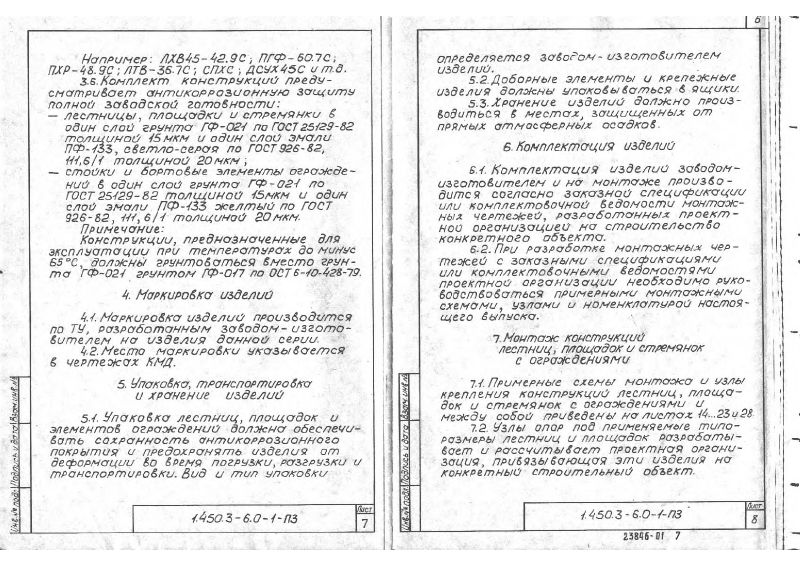 Например: ЛХВ45-42.9С; ПГФ-60.7С;
ПХР-48.9С; ЛТВ-36.7С; СПХС; ДСУХ45С и т.д.
3.6. Комплект конструкций преду-
сматривает антикоррозионную защиту
полной заводской готовности:
— лестницы, площадки и стремянки в
один слой грунта ГФ-021 по ГОСТ 25129-82
толщиной 15 мкм и один слой эмали
ПФ-133, светло-серая по ГОСТ 926-82,
111,6/1 толщиной 20 мкм;
— стойки и бортовые элементы огражде-
ний в один слой грунта ГФ-021 по
ГОСТ 25129-82 толщиной 15мкм и один
слой эмали ПФ-133 желтый по ГОСТ
926-82, 111,6/1 толщиной 20мкм.
Примечание:
Конструкции, предназначенные для
эксплуатации при температурах до минус
65°С, должны грунтоваться вместо грун-
та ГФ-021 грунтом ГФ-017 по ОСТ 6-10-428-79.
4. Маркировка изделий
4.1. Маркировка изделий производится
по ТУ, разработанным заводом-изгото-
вителем на изделия данной серии.
4.2. Место маркировки указывается
в чертежах КМД.
5. Упаковка, транспортировка
и хранение изделий
5.1. Упаковка лестниц, площадок и
элементов ограждений должна обеспечи-
вать сохранность антикоррозионного
покрытия и предохранять изделия от
деформации во время погрузки, разгрузки и
транспортировки. Вид и тип упаковки
Инв.№ подл. Подпись и дата Взам.инв.№
1.450.3-6.0-1-ПЗ
Лист
7
6
определяется заводом-изготовителем
изделий.
5.2. Доборные элементы и крепежные
изделия должны упаковываться в ящики.
5.3. Хранение изделий должно произ-
водиться в местах, защищенных от
прямых атмосферных осадков.
6. Комплектация изделий
6.1. Комплектация изделий заводом-
изготовителем и на монтаже произво-
дится согласно заказной спецификации
или комплектовочной ведомости монтаж-
ных чертежей, разработанных проект-
ной организацией на строительство
конкретного объекта.
6.2. При разработке монтажных чер-
тежей с заказными спецификациями
или комплектовочными ведомостями
проектной организации необходимо руко-
водствоваться примерными монтажными
схемами, узлами и номенклатурой настоя-
щего выпуска.
7. Монтаж конструкций
лестниц, площадок и стремянок
с ограждениями
7.1. Примерные схемы монтажа и узлы
крепления конструкций лестниц, площа-
док и стремянок с ограждениями и
между собой приведены на листах 14...23 и 28.
7.2. Узлы опор под применяемые типо-
размеры лестниц и площадок разрабаты-
вает и рассчитывает проектная органи-
зация, привязывающая эти изделия на
конкретный строительный объект.
Инв.№ подл. Подпись и дата Взам.инв.№
1.450.3-6.0-1-ПЗ
Лист
8
23846-01 7